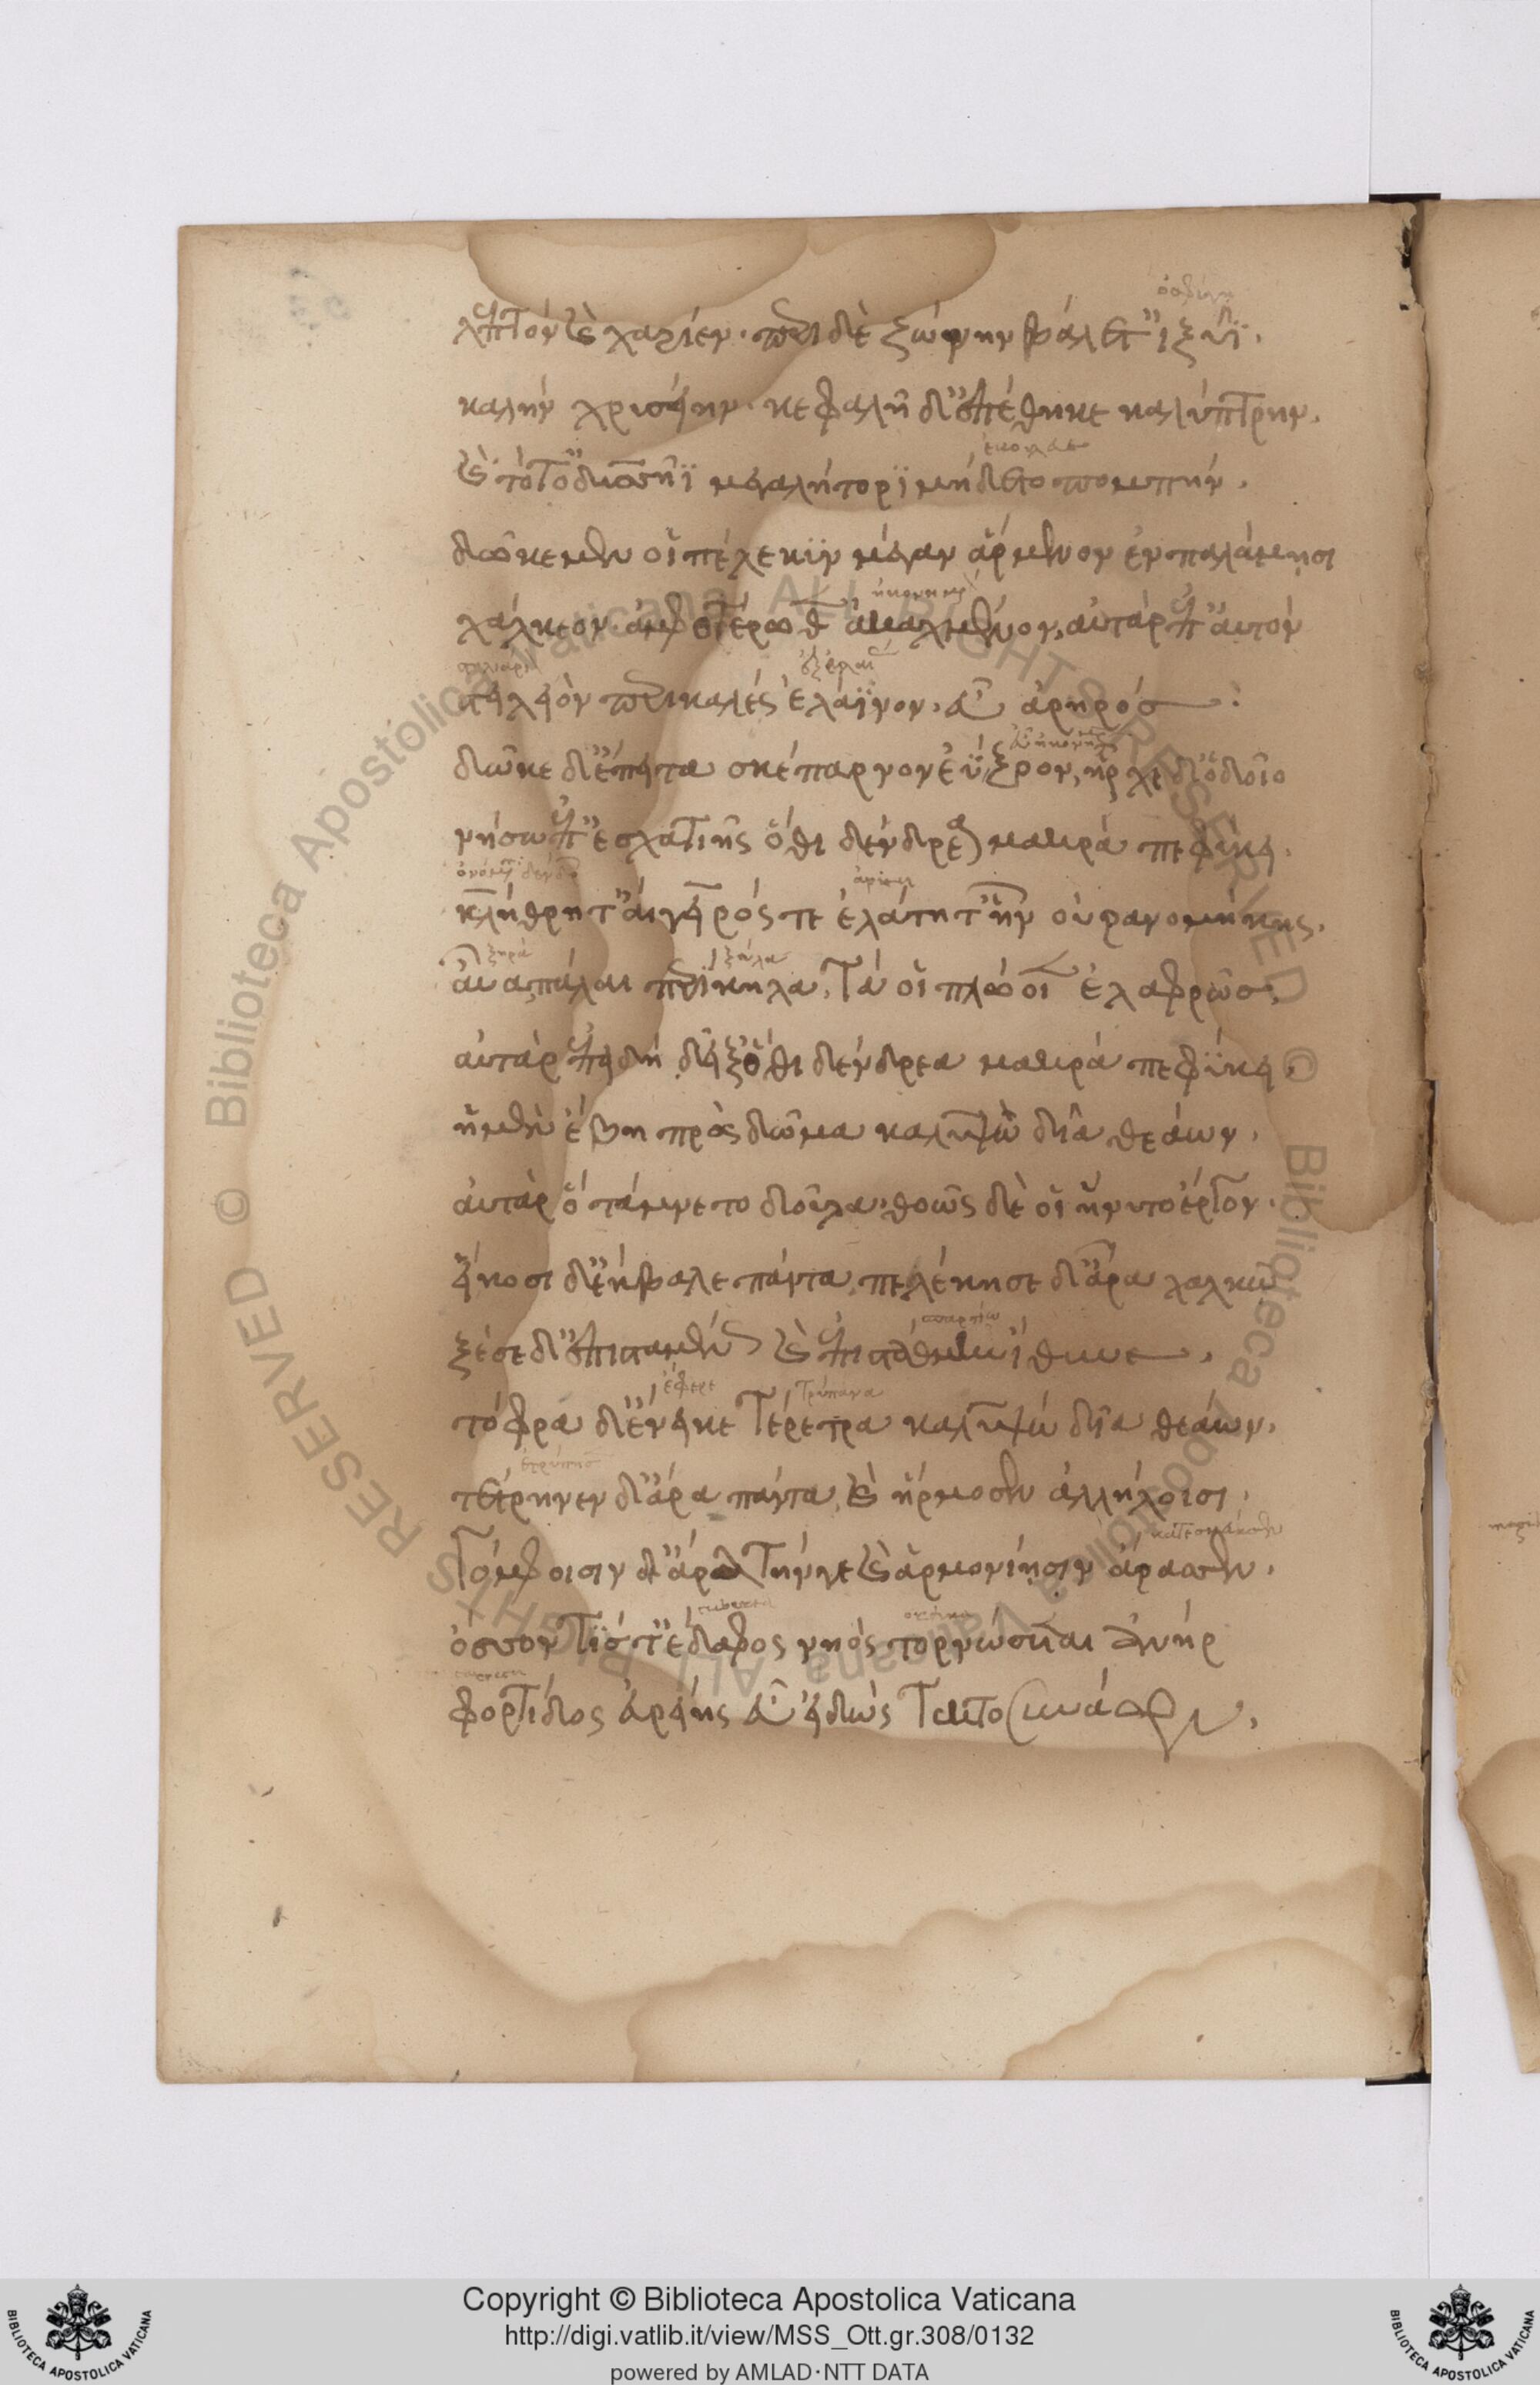 λεπτὸν καὶ χαρίεν· περὶ δὲ ζώνην βάλετ' ἰξυῖ·
καλὴν χρυσείην· κεφαλῆ δ' ἐπέθηκε καλύπτρην.
καὶ τότ' ὀδυσσῆϊ μεγαλήτορϊ μήδετο πομπήν.
δῶκε μὲν οἱ πέλεκϋν μέγαν ἄρμενον ἐν παλάμησι
χάλκεον· ἀμφοτέρωθεν ἀκαχμένον, αὐτὰρ ἐπ' αὐτὸν
στειλειὸν περικαλὲς ἐλάϊνον. εὖ ἀρηρός :
δῶκε δ' ἔπειτα σκέπαρνον ἐΰξοον, ἦρχε δ' ὁδοῖο
νήσου ἐπ' ἐσχατιῆς ὅθι δένδρεα μακρὰ πεφύκει.
κλήθρη τ' αἴγειρός τε ἐλάτη τ' ἦν οὐρανομήκης.
ξηρὰ
αὖα πάλαι περίκηλα, τά οἱ πλώοι ἐλαφρῶς.
αὐτὰρ ἐπειδὴ δεῖξ' ὅθι δένδρεα μακρὰ πεφύκει.
ἡ μὲν ἔβη πρὸς δῶμα καλυψὼ δῖα θεάων.
αὐτὰρ ὁ τάμνετο δοῦρα· θοῶς δέ οἱ ἤνυτο ἔργον.
εἴκοσι δ' ἔκβαλε πάντα, πελέκησε δ' ἄρα χαλκῶ
ξέσε δ' ἐπισταμένως καὶ ἐπὶ στάθμην ἴθυνε.
ἔφερε τρύπανα
τόφρα δ' ἔνεικε τέρετρα καλυψὼ δῖα θεάων.
τέτρηνεν δ' ἄρα πάντα, καὶ ἥρμοσεν ἀλλήλοισι.
γόμφοισιν δ' ἄρα τήνγε καὶ ἁρμονίησιν ἄρασσεν.
ὅσσον τίς τ' ἔδαφος νηὸς τορνώσεται ἀνὴρ
φορτίδος εὐρείης εὖ εἰδὼς τεκτοσυνάων.
Copyright © Biblioteca Apostolica Vaticana
http://digi.vatlib.it/view/MSS_Ott.gr.308/0132
powered by AMLAD·NTT DATA